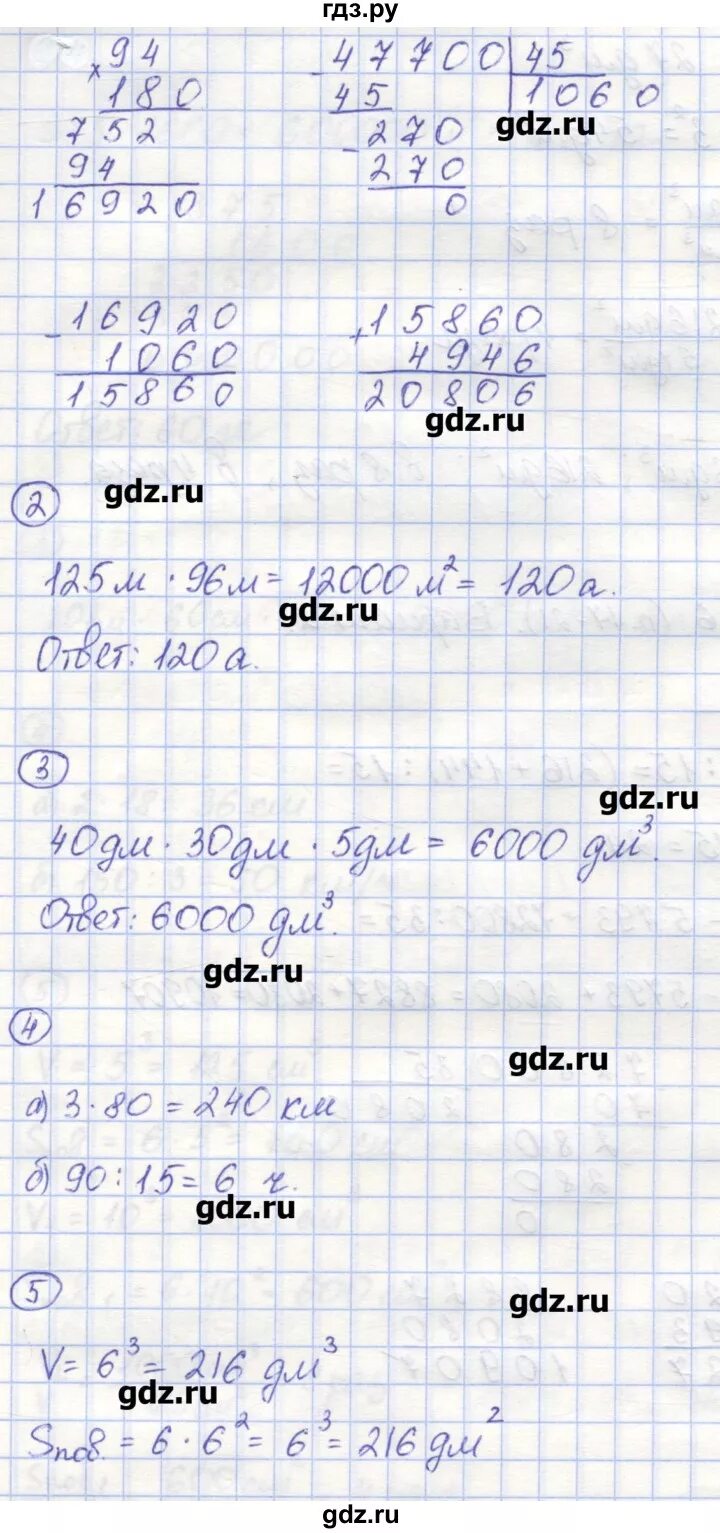 гдз.ру
× 94
180
752
94
16920
- 47700 | 45
45 | 1060
- 270
270
0
gdz.ru
- 16920
1060
15860
+ 15860
4946
20806
gdz.ru
2 gdz.ru
125 м · 96 м = 12000 м² = 120 а.
gdz.ru
Ответ: 120 а.
3
gdz.ru
40 дм · 30 дм · 5 дм = 6000 дм³.
Ответ: 6000 дм³.
gdz.ru
4
gdz.ru
а) 3 · 80 = 240 км
б) 90 : 15 = 6 ч.
gdz.ru
5
gdz.ru
V = 6³ = 216 дм³
gdz.ru
Sпов. = 6 · 6² = 6³ = 216 дм²
gdz.ru